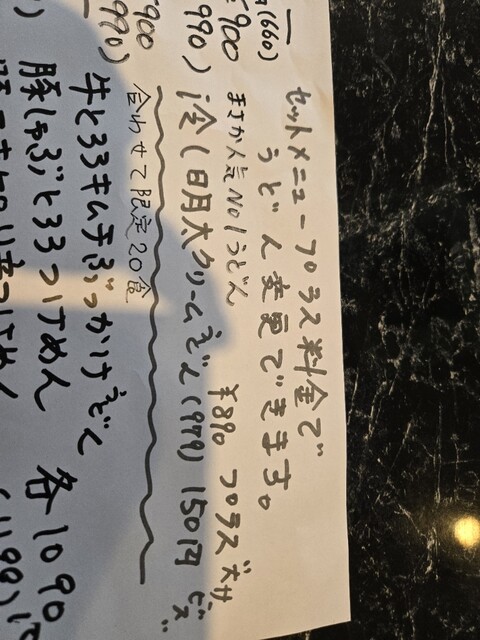 セットメニュープラス料金で
うどん変更できます。
(660)
900
まさか人気No1うどん ¥890 プラス
990) 冷し明太クリームうどん(979) 150円
900 合わせて限定20食
990) 牛とろろキムチぶっかけうどん 各1090
豚しゃぶとろろつけめん (1190)